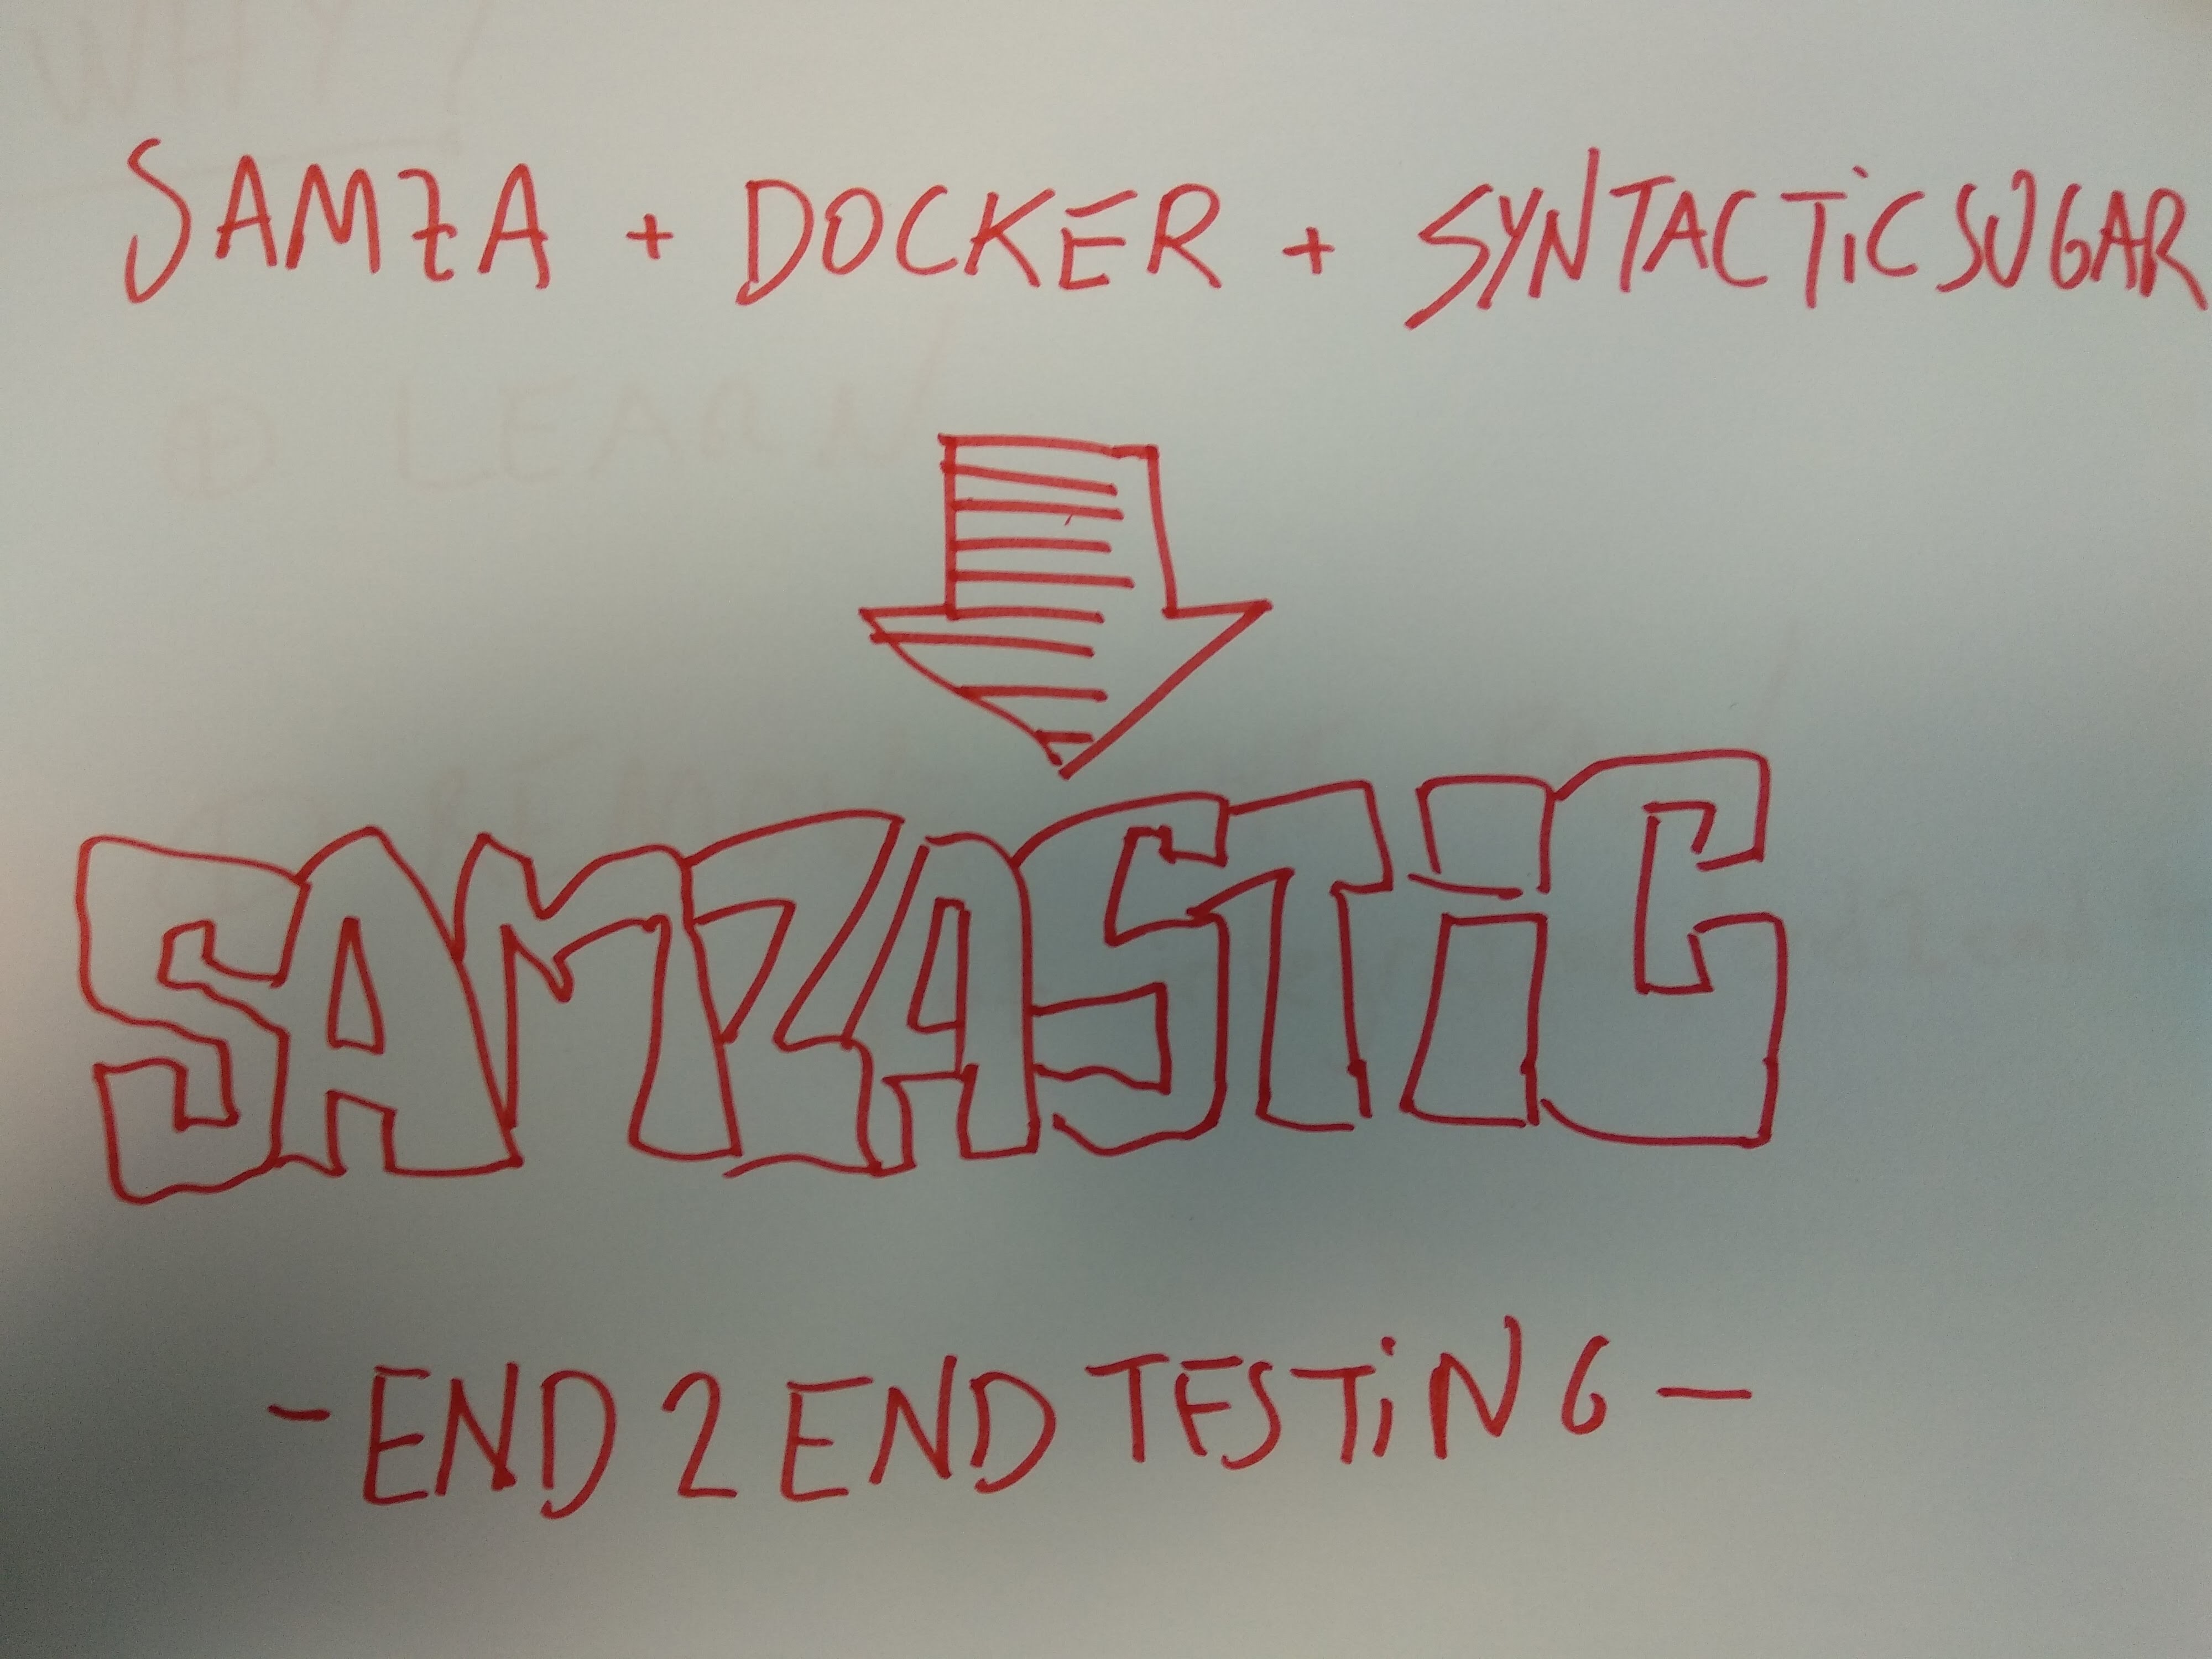 WHY?
SAMZA + DOCKER + SYNTACTiC SUGAR
LEARN
SAMZASTiC
- END 2 END TESTiNG -